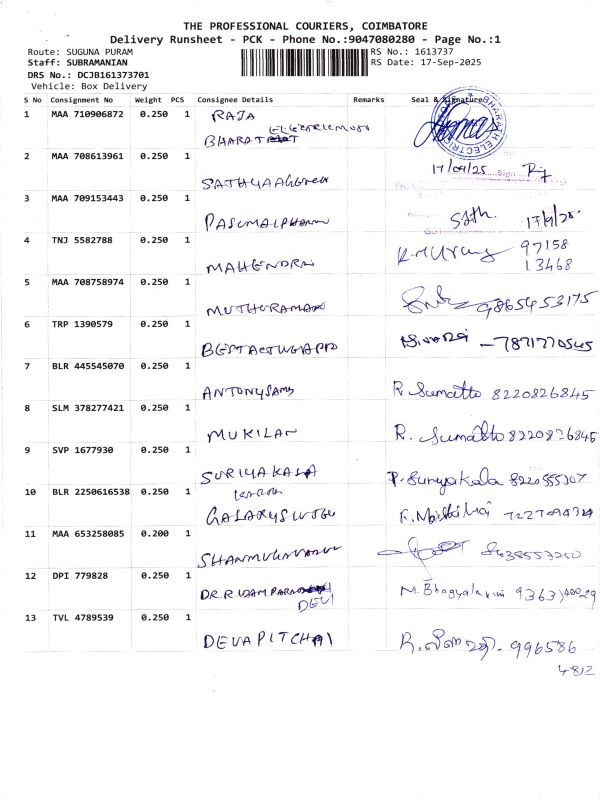 THE PROFESSIONAL COURIERS, COIMBATORE
Delivery Runsheet - PCK - Phone No.:9047080280 - Page No.:1
Route: SUGUNA PURAM
RS No.: 1613737
Staff: SUBRAMANIAN
RS Date: 17-Sep-2025
DRS No.: DCJB161373701
Vehicle: Box Delivery
S No Consignment No Weight PCS Consignee Details Remarks Seal & Signature
1 MAA 710906872 0.250 1 RAJA
BHARAT
17/09/25
2 MAA 708613961 0.250 1
3 MAA 709153443 0.250 1
Sath.
4 TNJ 5582788 0.250 1 MAHENDRAN 97158
13468
5 MAA 708758974 0.250 1 MUTHURAMAN 9865453175
6 TRP 1390579 0.250 1 - 7871770545
7 BLR 445545070 0.250 1 ANTONYSAMY R. Sumatto 8220826845
8 SLM 378277421 0.250 1 MUKILAN R. Sumatto 8220826845
9 SVP 1677930 0.250 1 SURIYAKALA P. Suryakala
10 BLR 2250616538 0.250 1
11 MAA 653258085 0.200 1
12 DPI 779828 0.250 1 DR.R
DEVI
13 TVL 4789539 0.250 1 DEVAPITCHAI 996586
4812